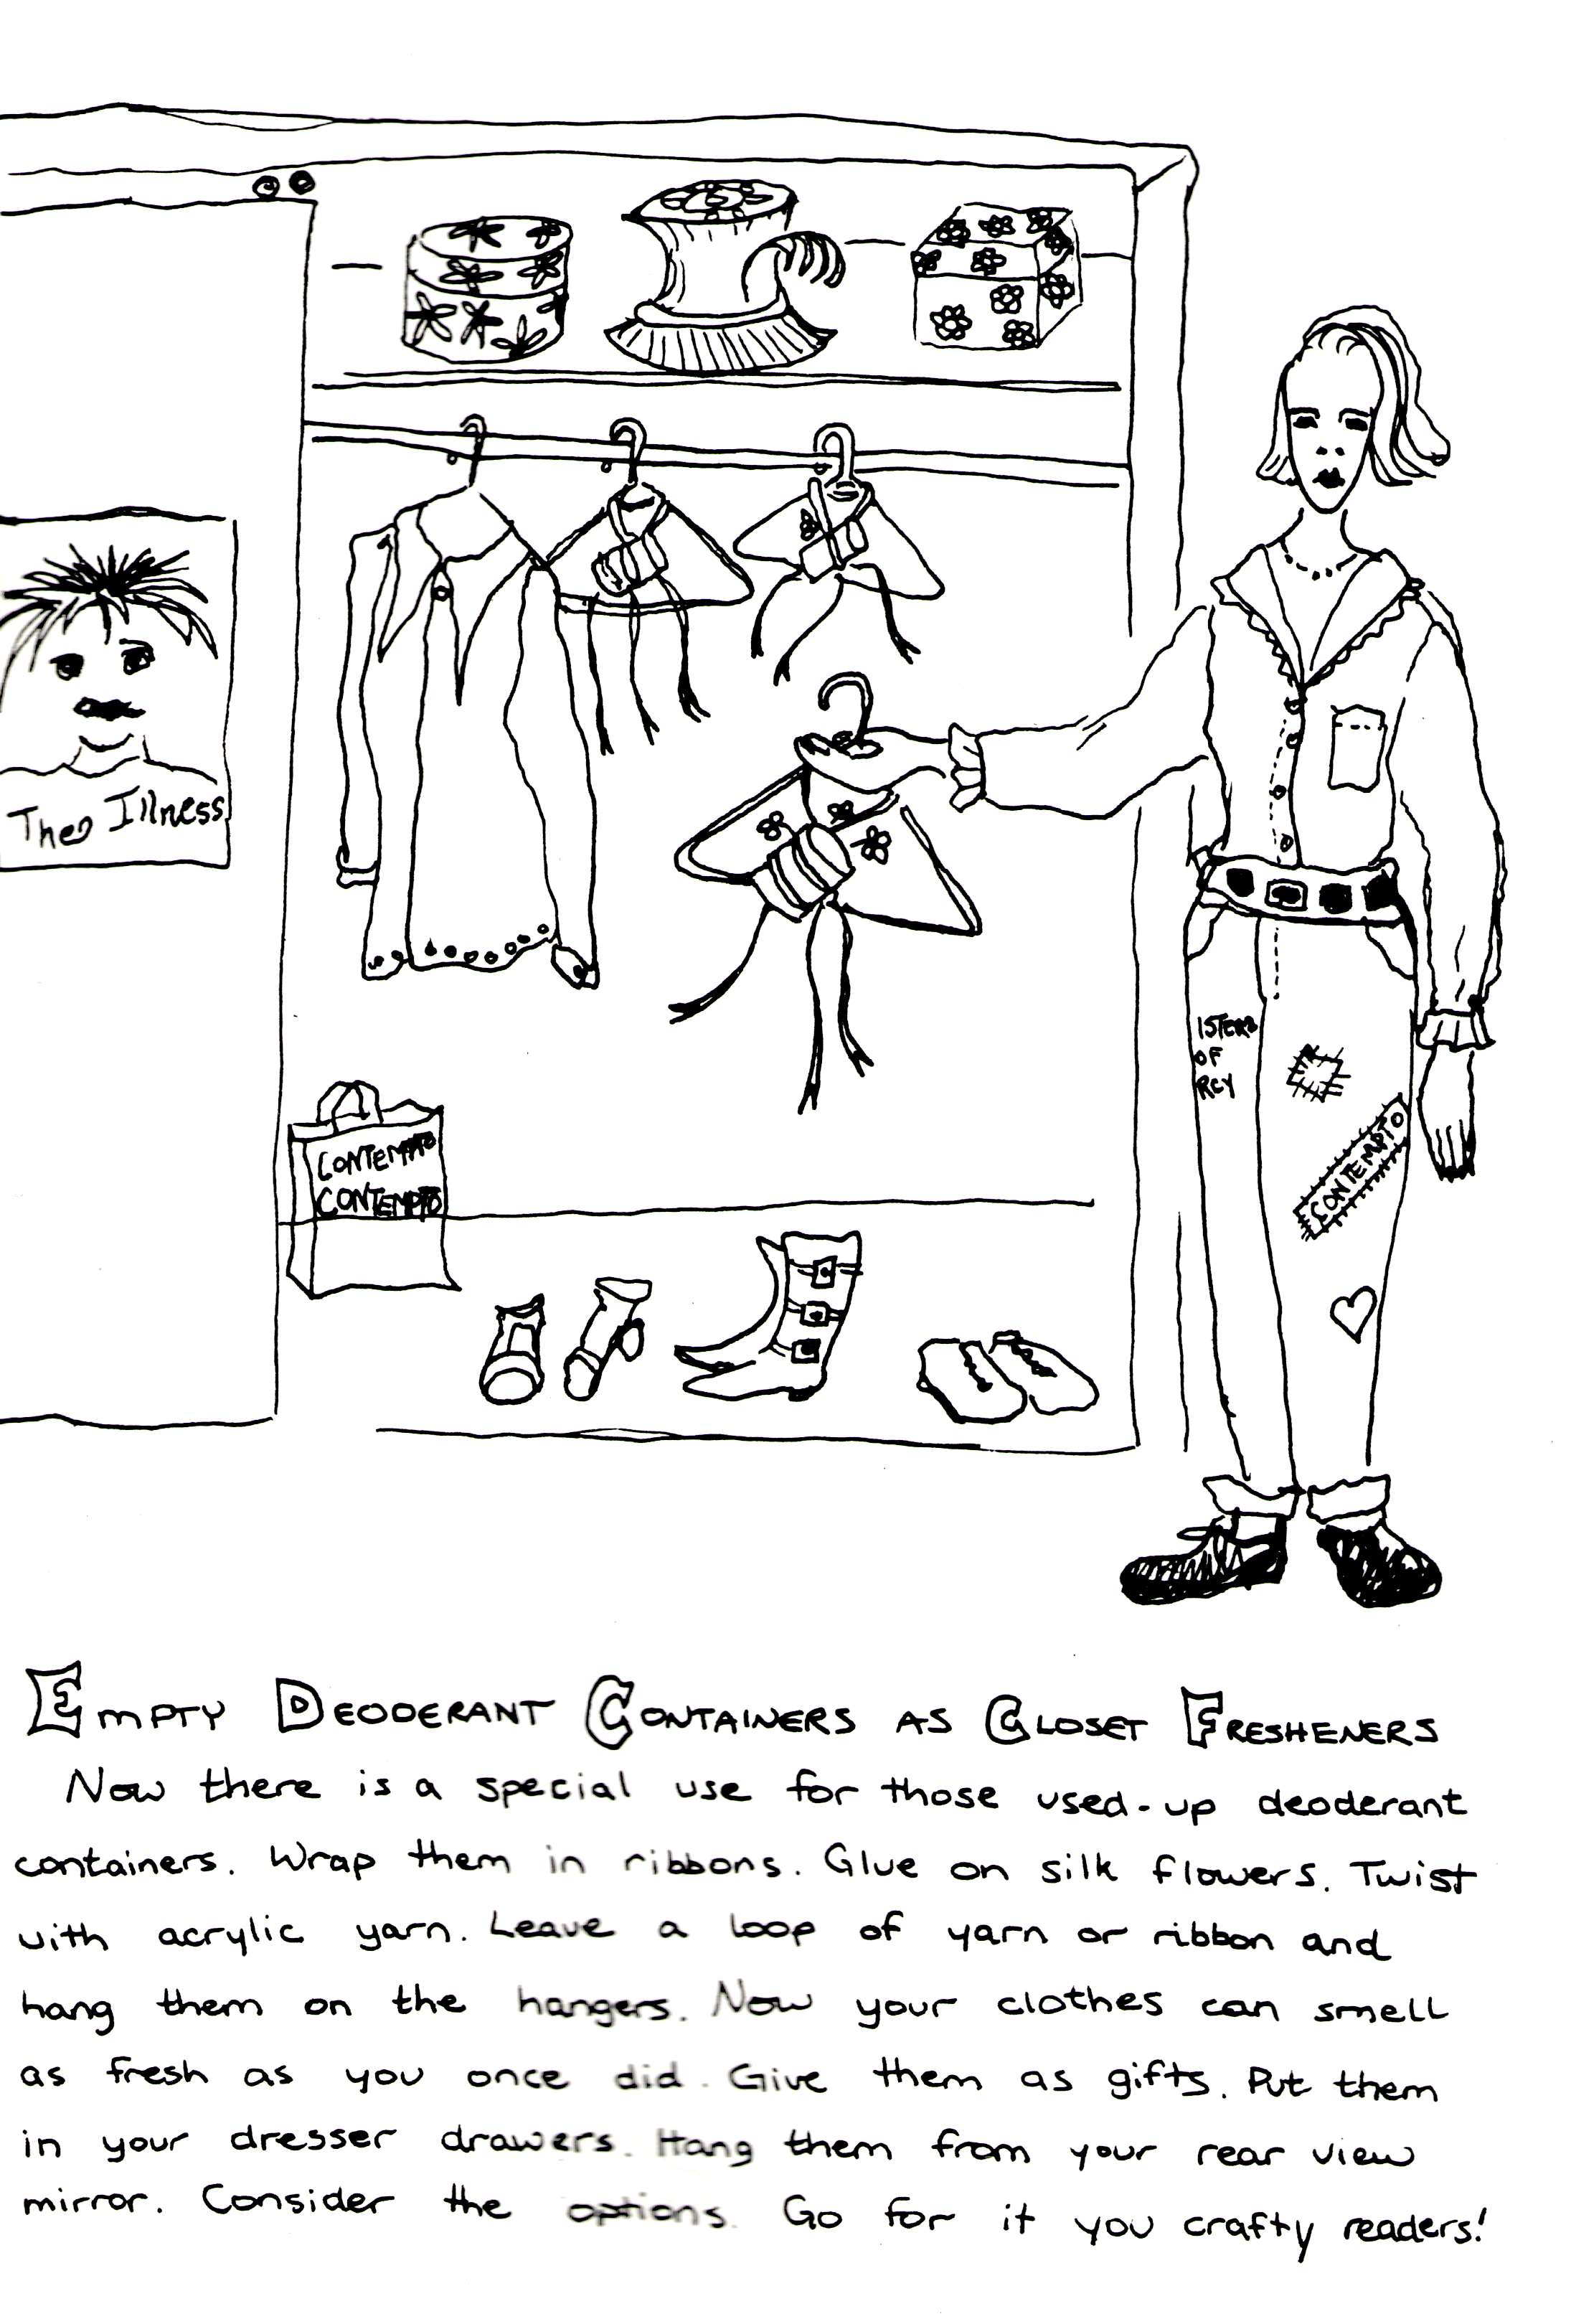 The Illness
ISTERS
OF
RCY
CONTEMPTO
CONTEMPTO
CONTEMPTO
EMPTY DEODERANT CONTAINERS AS CLOSET FRESHENERS
Now there is a special use for those used-up deoderant
containers. Wrap them in ribbons. Glue on silk flowers. Twist
with acrylic yarn. Leave a loop of yarn or ribbon and
hang them on the hangers. Now your clothes can smell
as fresh as you once did. Give them as gifts. Put them
in your dresser drawers. Hang them from your rear view
mirror. Consider the options. Go for it you crafty readers!